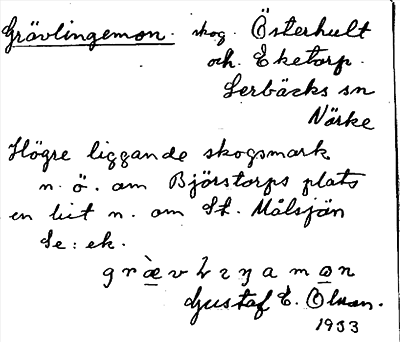 Grävlingemon. skog. Österhult
och. Eketorp.
Lerbäcks sn
Närke
Högre liggande skogsmark
n. ö. om Björstorps plats
en bit n. om St. Målsjön
Se: ek.
Gustaf E. Olson.
1933